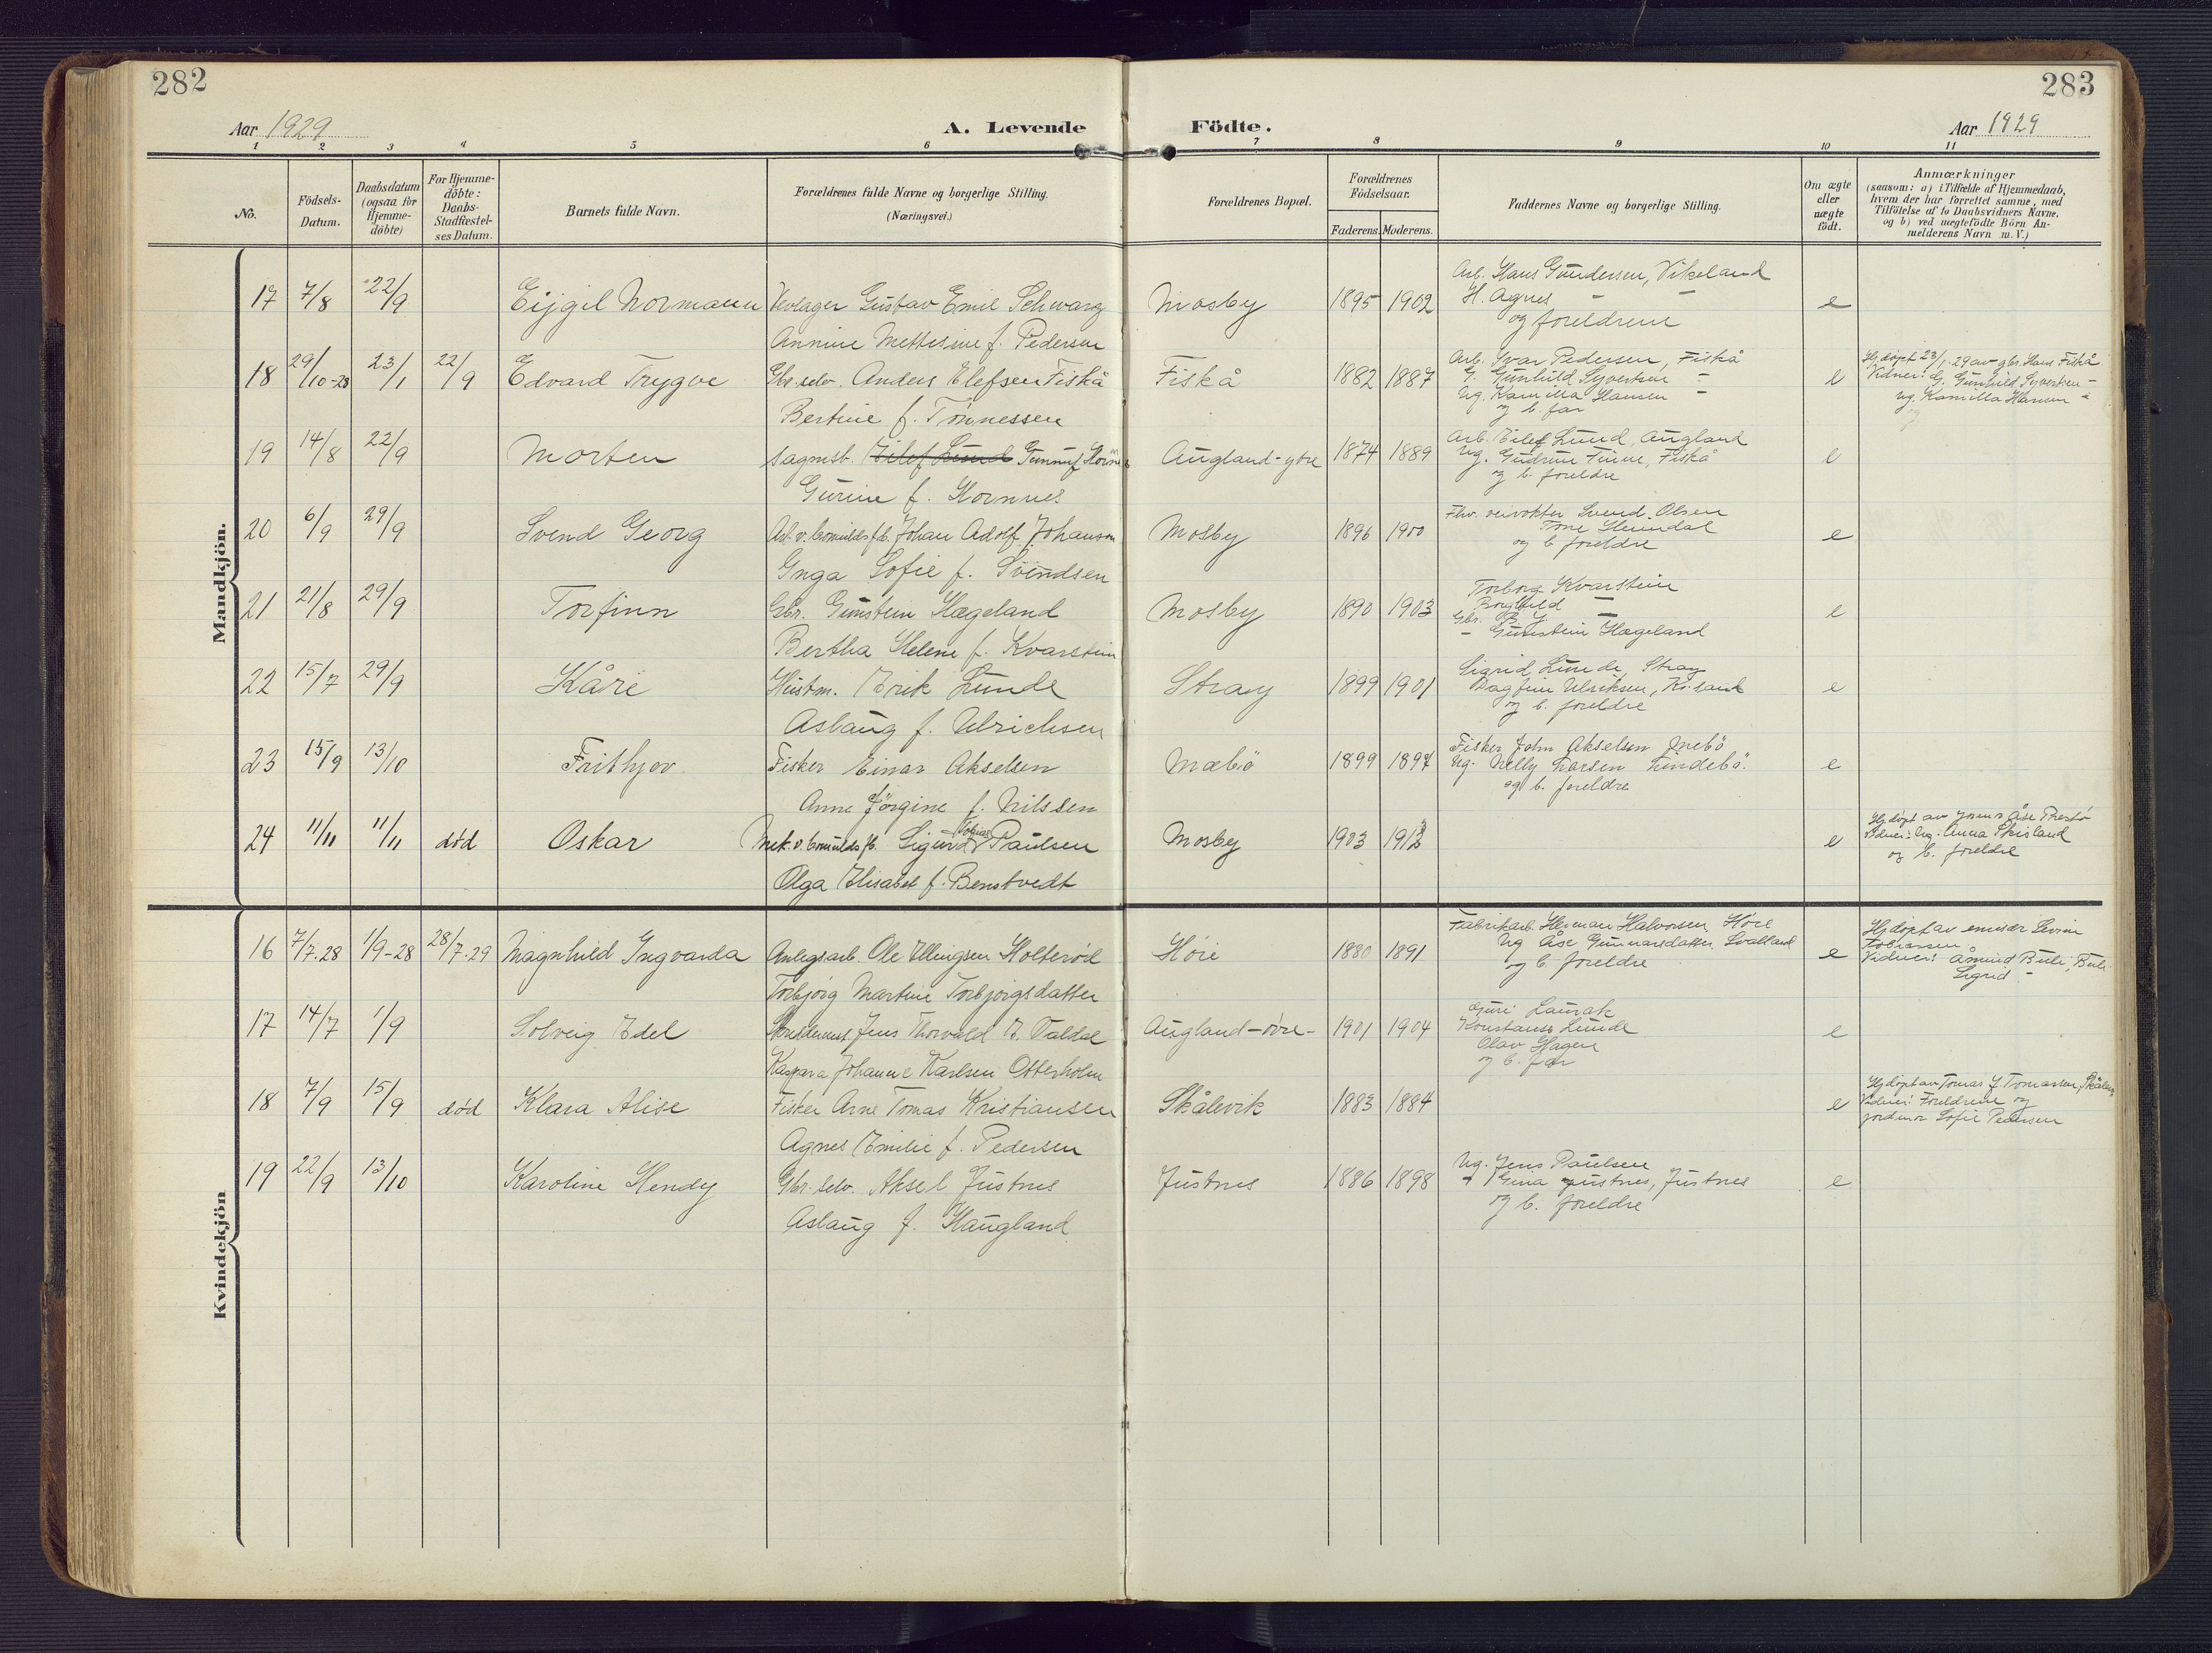 282
283
Aar 1929
A. Levende Födte.
Aar 1929
1 2 3 4 5 6 7 8 9 10 11
No.
Födsels-
Datum.
Daabsdatum
(ogsaa for
Hjemme-
döbte)
For Hjemme-
döbte:
Daabs-
Stadfæstel-
ses Datum.
Barnets fulde Navn.
Forældrenes fulde Navne og borgerlige Stilling.
(Næringsvei.)
Forældrenes Bopæl.
Forældrenes
Födselsaar.
Faderens. Moderens.
Faddernes Navne og borgerlige Stilling.
Om ægte
eller
uægte
födt.
Anmærkninger
(saasom: a) i Tilfælde af Hjemmedaab,
hvem der har forrettet samme, med
Tilföielse af to Daabsvidners Navne,
og b) ved uægtefödte Börn An-
melderens Navn m. V.)
Mandkjön.
17 7/8 22/9 Eijgil Normann
Gustav Emil Schwarz
Annine Mettesine f. Pedersen
Mosby 1895 1902
Arb. Hans Gundersen, Vikeland
H. Agnes - -
og foreldrene
e
18 29/10-28 23/1 22/9 Edvard Trygve
Gbr. selv. Anders Elefsen Fiskå
Bertine f. Tønnessen
Fiskå 1882 1887
Arb. Ivar Pedersen, Fiskå
G. Gunhild Syvertsen -
Ug. Kamilla Hansen -
og b. far
e
Hj.døpt 23/1-29 av gbr. Hans Fiskå
Vidner: G. Gunhild Syvertsen -
ug. Kamilla Hansen -
19 14/8 22/9 Morten
Sagmst. Eilef Lund Gunnuf
Gurine f. Hornnes
Augland-ytre 1874 1889
Arb. Eilef Lund, Augland
Ug. Gudrun Finne, Fiskå
og b. foreldre
e
20 6/9 29/9 Svend Georg
Arb. v. Johan Adolf Johanson
Inga Sofie f. Svendsen
Mosby 1896 1900
Fhv. veivokter Svend Olsen
Tone
og b. foreldre
e
21 21/8 29/9 Torfinn
Gbr. Gunstein Hægeland
Bertha Helene f. Kvarstein
Mosby 1890 1903
Torborg Kvarstein
Borghild -
Gbr.
- Gunstein Hægeland
e
22 15/7 29/9 Kåre
Hustm. Erik Lunde
Aslaug f. Ulrichsen
Stray 1899 1901
Sigrid Lunde, Stray
Dagfinn Ulriksen, Kr.sand
og b. foreldre
e
23 15/9 13/10 Frithjov
Fisker Einar Akselsen
Anne Jørgine f. Nilssen
Mæbö 1899 1897
Fisker John Akselsen
Ug. Nelly Larsen Lindebö.
og b. foreldre
e
24 11/11 11/11 død Oskar
Mek. v. Sigurd Tobias Paulsen
Olga Elisabet f. Benstvedt
Mosby 1903 1912
e
Hj.døpt av jorm. Åse
Vidner: Ug. Anna Skisland
og b. foreldre
Kvindekjön
16 7/7.28 1/9-28 28/7.29 Magnhild Ingvarda
Anlegsarb. Ole Ellingsen Holterød
Torbjørg Martine Torbjørgsdatter
Høie 1880 1891
Fabrikarb. Herman Halvorsen, Høie
Ug Åse Gunnarsdatter
og b. foreldre
e
Hj.døpt av emissær
Vidner: Åmund
Sigrid -
17 14/7 1/9 Solveig Edel
Jens Thorvald E. Valdal
Kaspara Johanne Karlsen Otterholm
Augland-øvre- 1901 1904
Guri Laurak
Konstanse Lunde
Olav Hagen
og b. far
e
18 7/9 15/9 død Klara Alise
Fisker Arne Tomas Kristiansen
Agnes Emilie f. Pedersen
Skålevik 1883 1884
e
Hj.døpt av Tomas J. Tomassen, Skålevig
Vidner: Foreldrene og
jordmor Sofie Pedersen
19 22/9 13/10 Karoline Hendy
Gbr. selv. Aksel Justnes
Aslaug f. Haugland
Justnes 1886 1898
Ug. Jens Paulsen
- Gina Justnes, Justnes
og b. foreldre
e